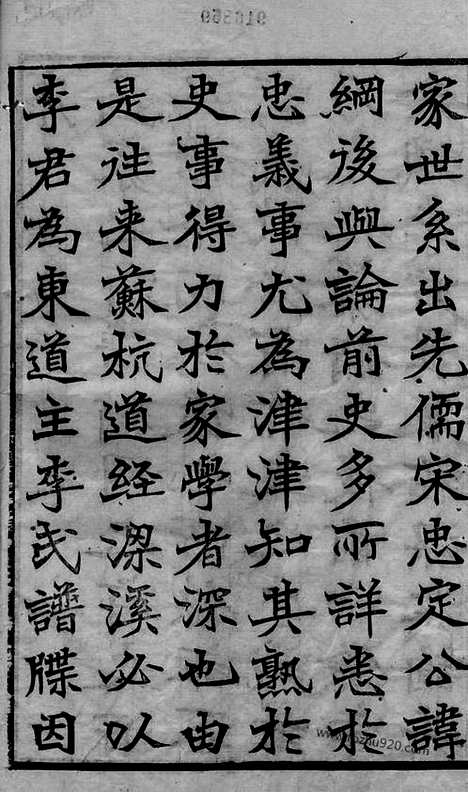 家世系出先儒宋忠定公諱
綱後與論前史多所詳悉於
忠義事尤為津津知其熟於
史事得力於家學者深也由
是往来蘇杭道经梁溪必以
李君為東道主李氏譜牒因